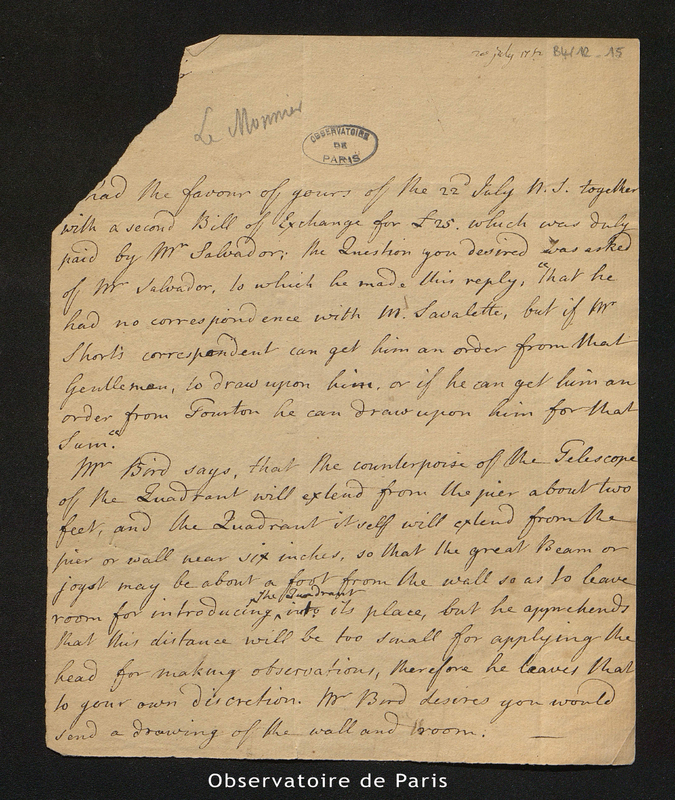 20 july 17 B4/12 - 15
Le Monnier
OBSERVATOIRE
DE
PARIS
had the favour of yours of the 22d July N.S. together
with a second Bill of Exchange for £25. which was duly
paid by Mr Salvador; the Question you desired was asked
of Mr Salvador, to which he made this reply, "that he
had no correspondence with M. Savalette, but if Mr
Short's correspondent can get him an order from that
Gentleman, to draw upon him, or if he can get him an
order from Tourton he can draw upon him for that
Sum."
Mr Bird says, that the counterpoise of the Telescope
of the Quadrant will extend from the pier about two
feet, and the Quadrant itself will extend from the
pier or wall near six inches, so that the great Beam or
joyst may be about a foot from the wall so as to leave
the Quadrant
room for introducing into its place, but he apprehends
that this distance will be too small for applying the
head for making observations, therefore he leaves that
to your own discretion. Mr Bird desires you would
send a drawing of the wall and room. —
Observatoire de Paris